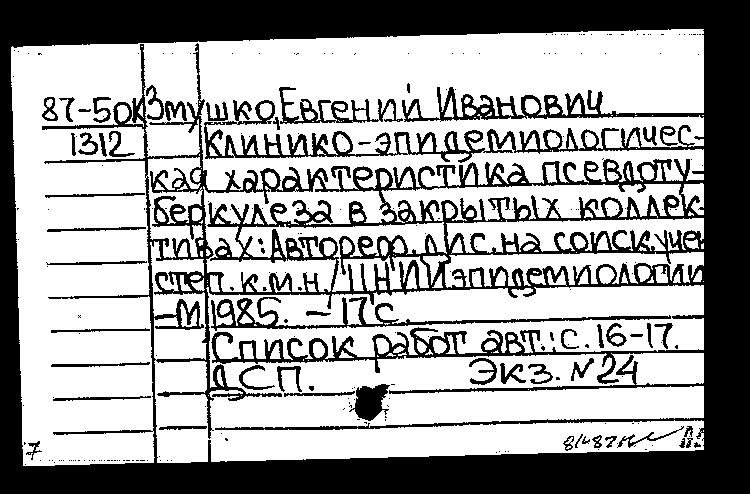 87-50К Змушко, Евгений Иванович.
1312 Клинико-эпидемиологичес-
кая характеристика псевдоту-
беркулеза в закрытых коллек-
тивах: Автореф. дис. на соиск. учен
степ. к.м.н. / ЦНИИ эпидемиологии
-М 1985. - 17 с.
Список работ авт.: с. 16-17.
ДСП. Экз. N24
7